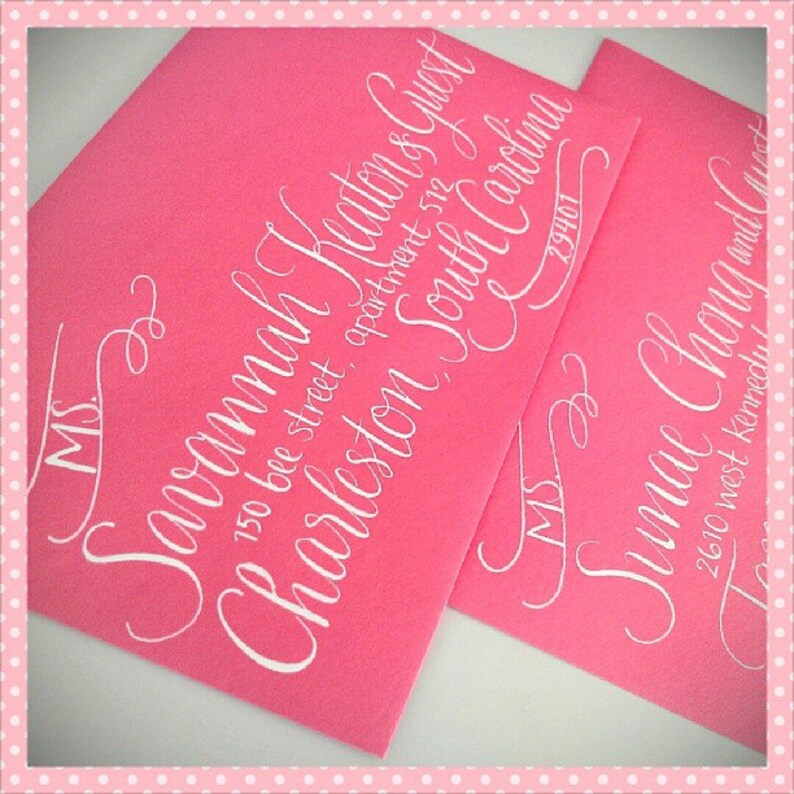 MS.
Savannah Keaton & Guest
150 bee street, apartment 512
Charleston, South Carolina
29401
MS.
Sunae Chong and Guest
2610 west Kennedy